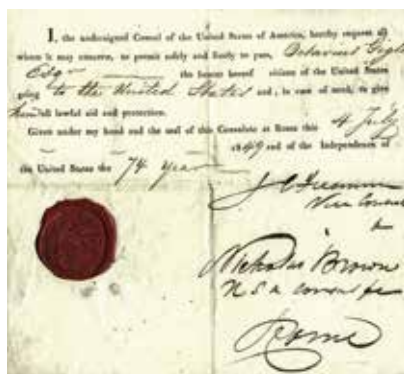 I, the undersigned Consul of the United States of America, hereby request all
whom it may concern, to permit safely and freely to pass,
Esqr the bearer hereof citizen of the United States
going to the United States and, in case of need, to give
him all lawful aid and protection.
Given under my hand and the seal of this Consulate at Rome this 4 July
1849 and of the Independence of
the United States the 74 year
Vice Consul
Nicholas Brown
U S a consul for
Rome